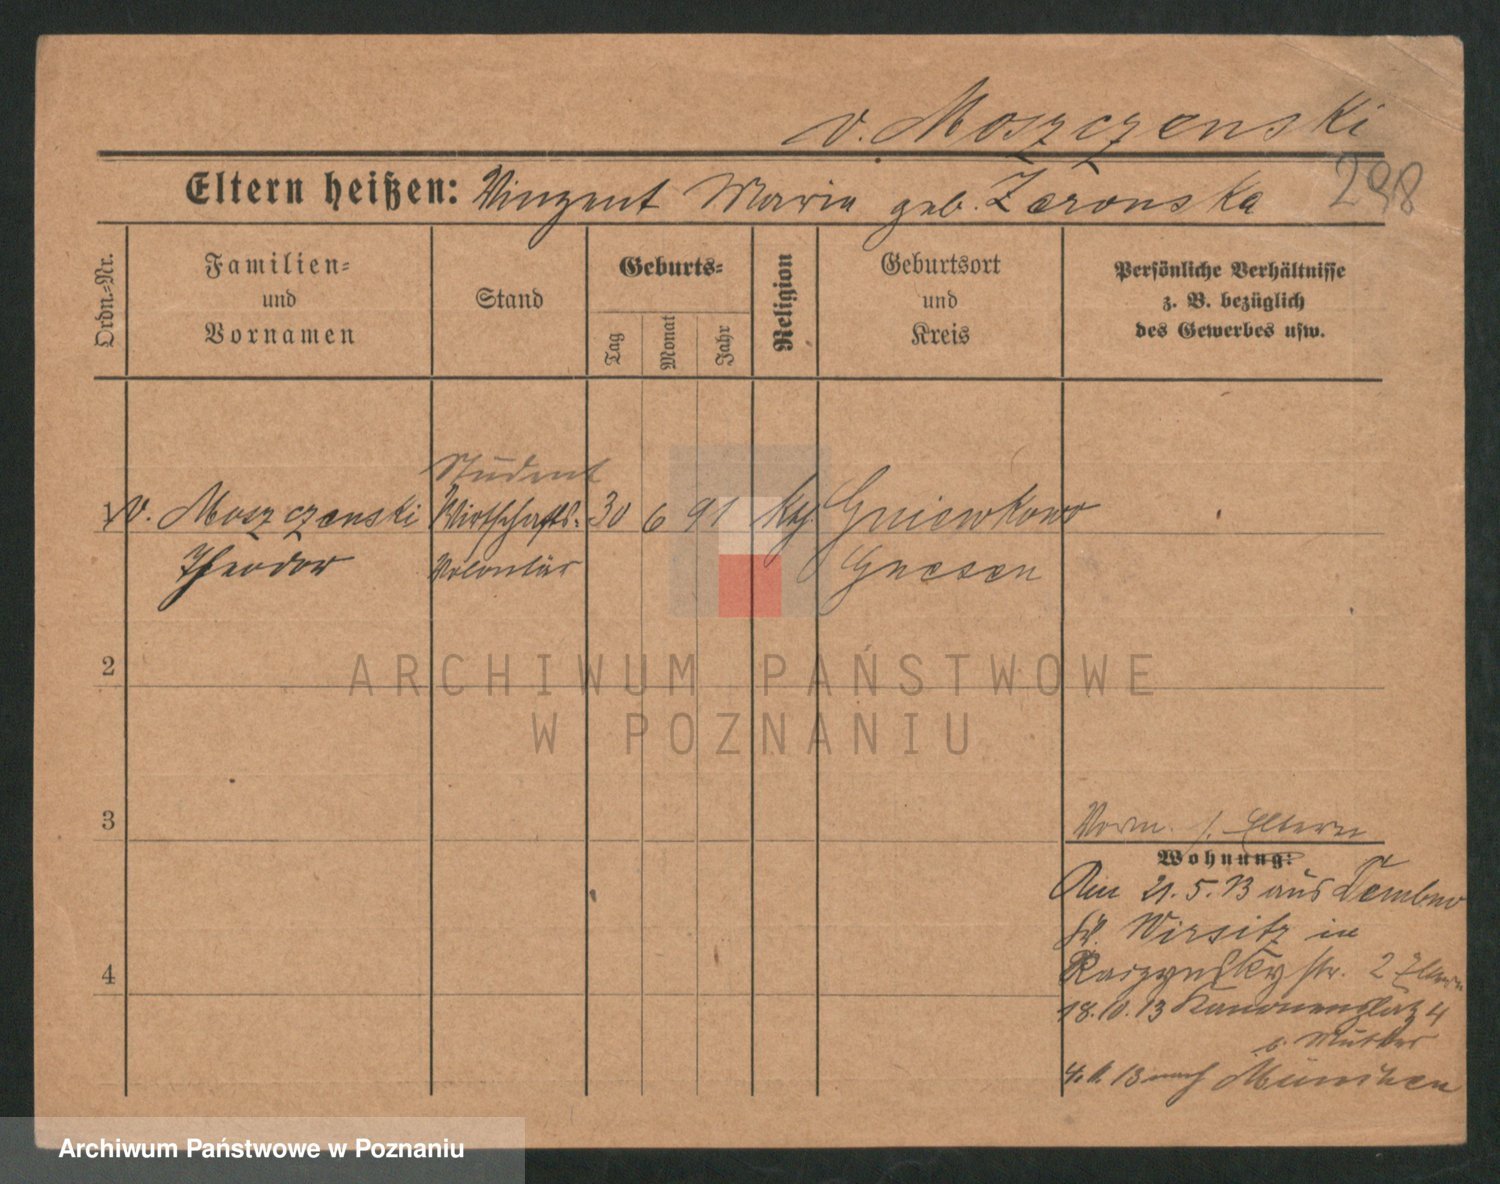 v. Moszczenski
Eltern heißen: Vinzent Maria geb. Zeronska
298
Ordn.-Nr.
Familien-
und
Vornamen
Stand
Geburts-
Tag
Monat
Jahr
Religion
Geburtsort
und
Kreis
Persönliche Verhältnisse
z. B. bezüglich
des Gewerbes usw.
Student
1 v. Moszczenski Wirtschafts- 30 6 91 kg Gniewkowo
Theodor Volontär Gnesen
2
3
4
Vorm. s. Eltern
Wohnung:
Am 21.5.13 aus
Kr. Wirsitz in
Raczynskystr. 2 Eltern
18.10.13 Kanonenplatz 4
b. Mutter
13 nach München
ARCHIWUM PAŃSTWOWE
W POZNANIU
Archiwum Państwowe w Poznaniu